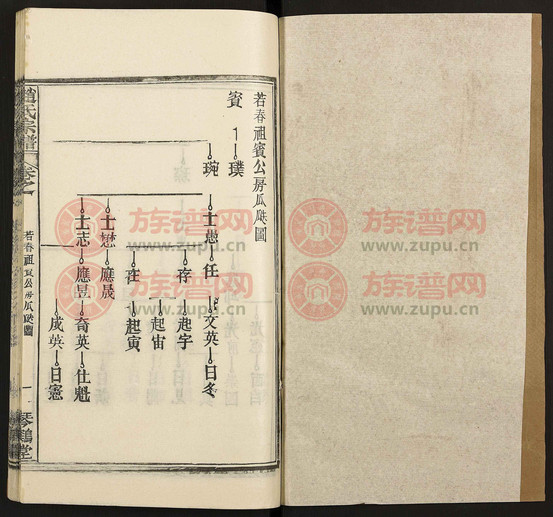 若春祖賓公房瓜瓞圖
賓
璞
琬
士懋
任
文英
日冬
存
起宇
起宙
在
起寅
士懋
應晟
士志
應昱
奇英
仕魁
咸英
日憲
趙氏宗譜
卷之
若春祖賓公房瓜瓞圖
一
琴鶴堂
族譜网
www.zupu.cn
族譜网
www.zupu.cn
族譜网
www.zupu.cn
族譜网
www.zupu.cn